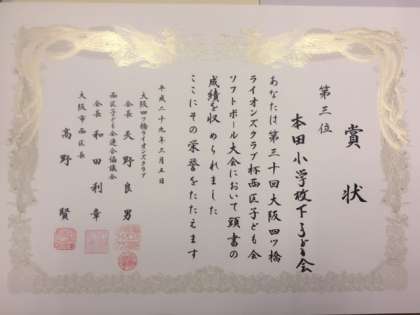 賞状
第三位
本田小学校下子ども会
あなたは第三十回大阪四ツ橋
ライオンズクラブ杯西区子ども会
ソフトボール大会において頭書の
成績を収められました
ここにその栄誉をたたえます
平成二十九年三月五日
大阪四ツ橋ライオンズクラブ
会長 矢野良男
西区子ども会連合協議会
会長 和田利章
大阪市西区長
高野賢